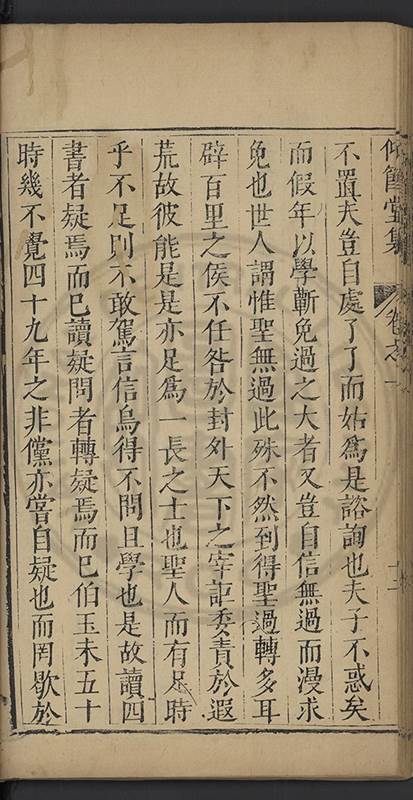 仰節堂集
卷之一
十二
不置夫豈自處了了而姑爲是諮詢也夫子不惑矣
而假年以學蘄免過之大者又豈自信無過而漫求
免也世人謂惟聖無過此殊不然到得聖過轉多耳
辟百里之侯不任咎於封外天下之宰詎委責於遐
荒故彼能是是亦足爲一長之士也聖人而有足時
乎不足則不敢駕言信烏得不問且學也是故讀四
書者疑焉而已讀疑問者轉疑焉而已伯玉未五十
時幾不覺四十九年之非儻亦嘗自疑也而罔歇於